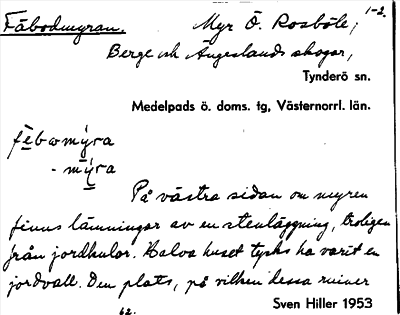 Fäbodmyran. Myr Ö. Rosböle, 1-2.
Berge och Ängeslands skogar,
Tynderö sn.
Medelpads ö. doms. tg, Västernorrl. län.
fèbωmýra
- mýra
På västra sidan om myren
finns lämningar av en stenläggning, troligen
från jordkulor. Halva huset tycks ha varit en
jordvall. Den plats, på vilken dessa ruiner
Sven Hiller 1953
62.